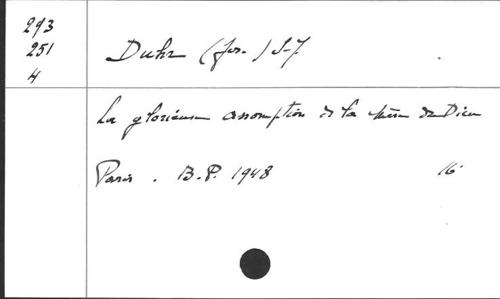 293
251
4
Duhr (Jos.) S.J.
La glorieuse assomption de la Mère de Dieu
Paris. B.P. 1948 16°